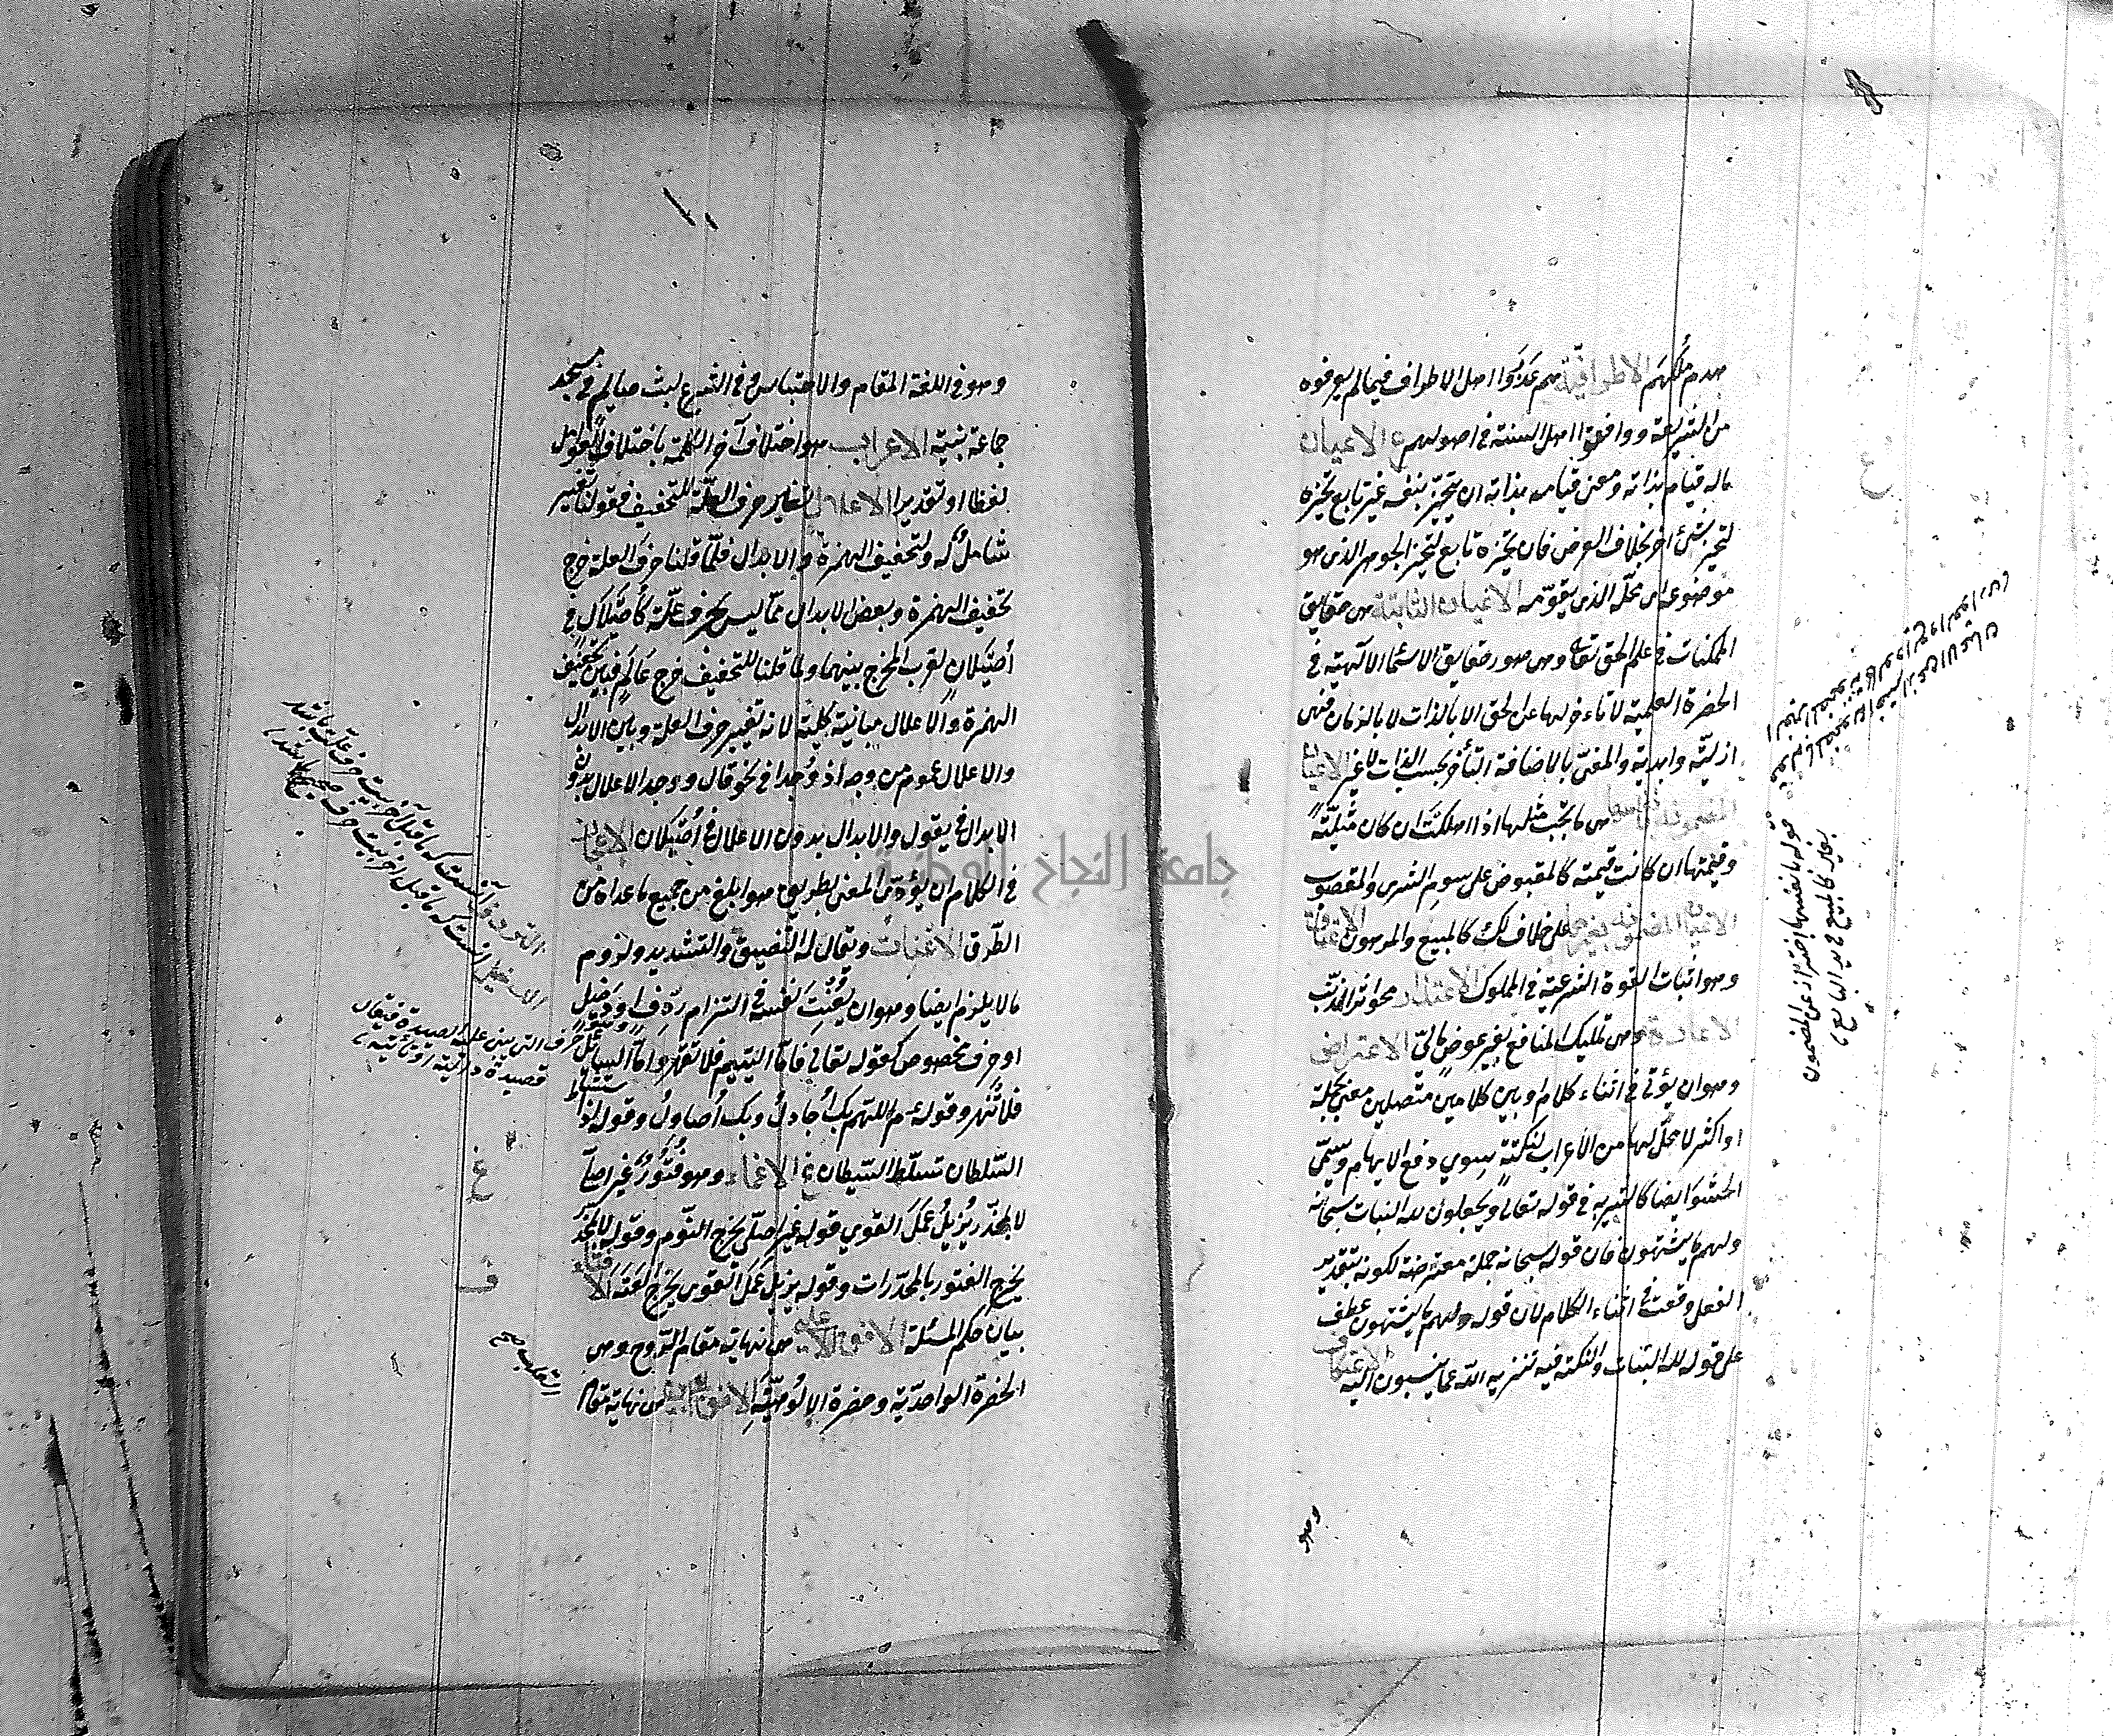 هدم ملكهم الاطرافية هم عذروا اهل الاطراف فيما لم يعرفوه
من الشريعة ووافقوا اهل السنة في اصولهم ع الاعيان
ماله قيام بذاته ومعنى قيامه بذاته ان يتحيز بنفسه غير تابع تحيزه
لتحيز شئ اخر بخلاف العرض فان تحيزه تابع لتحيز الجوهر الذي هو
موضوعه اى محله الذي يقومه الاعيان الثابتة هى حقايق
الممكنات في علم الحق تعالى وهى صور حقايق الاسماء الالهية في
الحضرة العلمية لا تاءخر لها عن الحق الا بالذات لا بالزمان فهى
ازلية وابدية والمعنى بالاضافة التأخر بحسب الذات لا غير الاعيان
المضمونة بانفسها هى ما يجب مثلها اذا اهلكت ان كان مثلية
وقيمتها ان كانت قيمية كالمقبوض على سوم الشرى والمغصوب
الاعيان المضمونة بغيرها على خلاف ذلك كالمبيع والمرهون الاعتاق
وهو اثبات القوة الشرعية في المملوك الاعتذار محو اثر الذنب
الاعارة وهى تمليك المنافع بغير عوض مالى الاعتراض
وهو ان يؤتى في اثناء كلام او بين كلامين متصلين معنى بجملة
او اكثر لا محل لها من الاعراب لنكتة سوي دفع الايهام ويسمى
الحشو ايضا كالتنزيه في قوله تعالى ويجعلون لله البنات سبحانه
ولهم ما يشتهون فان قوله سبحانه جملة معترضة لكونه بتقدير
الفعل وقعت في اثناء الكلام لان قوله ولهم ما يشتهون عطف
على قوله لله البنات والنكتة فيه تنزيه الله عما ينسبون اليه الاعتكاف
وهو
ع
قوله بانفسها احتراز عن المضمون
بغيره كالمبيع في يد البايع
وهو في اللغة المقام والاحتباس وفي الشرع لبث صايم في مسجد
جماعة بنية الاعراب هو اختلاف آخر الكلمة باختلاف العوامل
لفظا او تقديرا الاعلال تغيير حرف العلة للتخفيف فقولنا تغيير
شامل له ولتخفيف الهمزة والابدال فلما قلنا حرف العلة خرج
تخفيف الهمزة وبعض الابدال مما ليس بحرف علة كأصيلال في
أصيلان لقرب المخرج بينهما ولما قلنا للتخفيف خرج عالم فبين تخفيف
الهمزة والاعلال مباينة كلية لانه تغيير حرف العلة وبين الابدال
والاعلال عموم من وجه اذ وجدا في نحو قال ووجد الاعلال بدون
الابدال في يقول والابدال بدون الاعلال في أصيلان الاعجاز
في الكلام ان يؤدى المعنى بطريق هو ابلغ من جميع ما عداه من
الطرق الاعنات ويقال له التضييق والتشديد ولزوم
ما لا يلزم ايضا وهو ان يعنت نفسه في التزام ردف او دخيل
او حرف مخصوص كقوله تعالى فاما اليتيم فلا تقهر واما السائل
فلا تنهر وقوله عم اللهم بك أحاول وبك أصاول وقوله اذا استشاط
السلطان تسلط الشيطان غ الاغماء وهو فتور غير اصلى
لا بمخدر يزيل عمل القوي قوله غير اصلى يخرج النوم وقوله لا بمخدر
يخرج الفتور بالمخدرات وقوله يزيل عمل القوى يخرج العته الافتاء
بيان حكم المسئلة الافق الاعلى هى نهاية مقام الروح وهى
الحضرة الواحدية وحضرة الالوهية الافق المبين هى نهاية مقام
القلب صح
غ
ف
حرف التى يبنى عليه القصيدة فيقال
قصيدة دالية او تائية
جامعة النجاح الوطنية